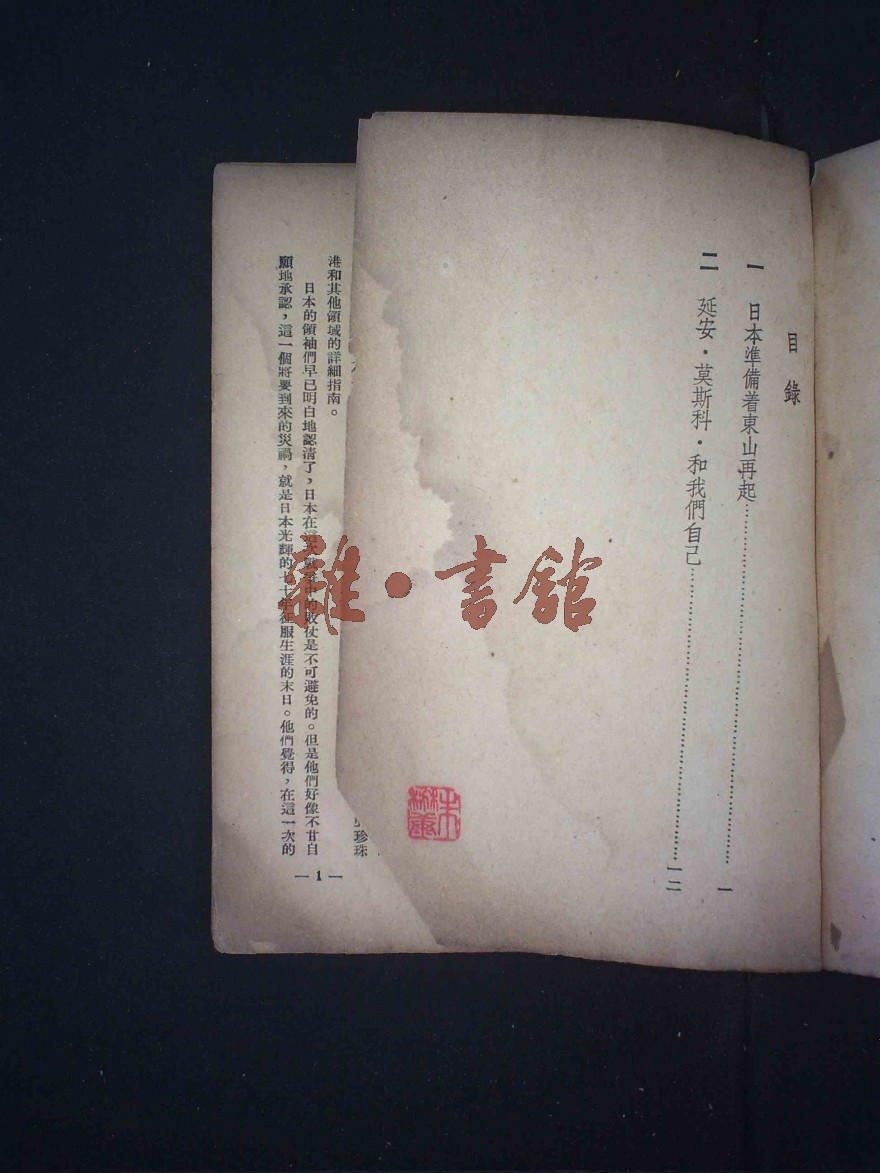 目錄
一 日本準備着東山再起……一
二 延安・莫斯科・和我們自己……一二
珍珠
港和其他領域的詳細指南。
日本的領袖們早已明白地認清了，日本在這次戰爭中的敗仗是不可避免的。但是他們好像不甘自
願地承認，這一個將要到來的災禍，就是日本光輝的七十年征服生涯的末日。他們覺得，在這一次的
— 1 —
雜・書館